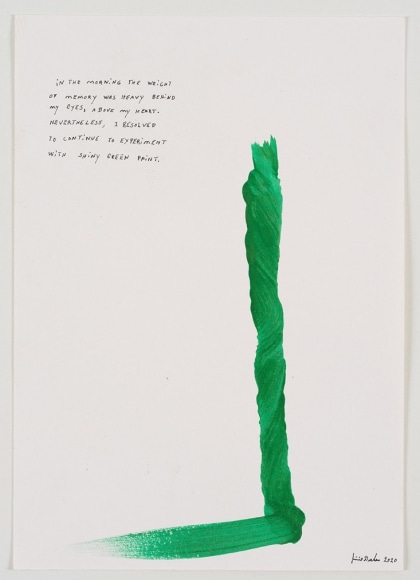 IN THE MORNING THE WEIGHT
OF MEMORY WAS HEAVY BEHIND
MY EYES, ABOVE MY HEART.
NEVERTHELESS, I RESOLVED
TO CONTINUE TO EXPERIMENT
WITH SHINY GREEN PAINT.
2020